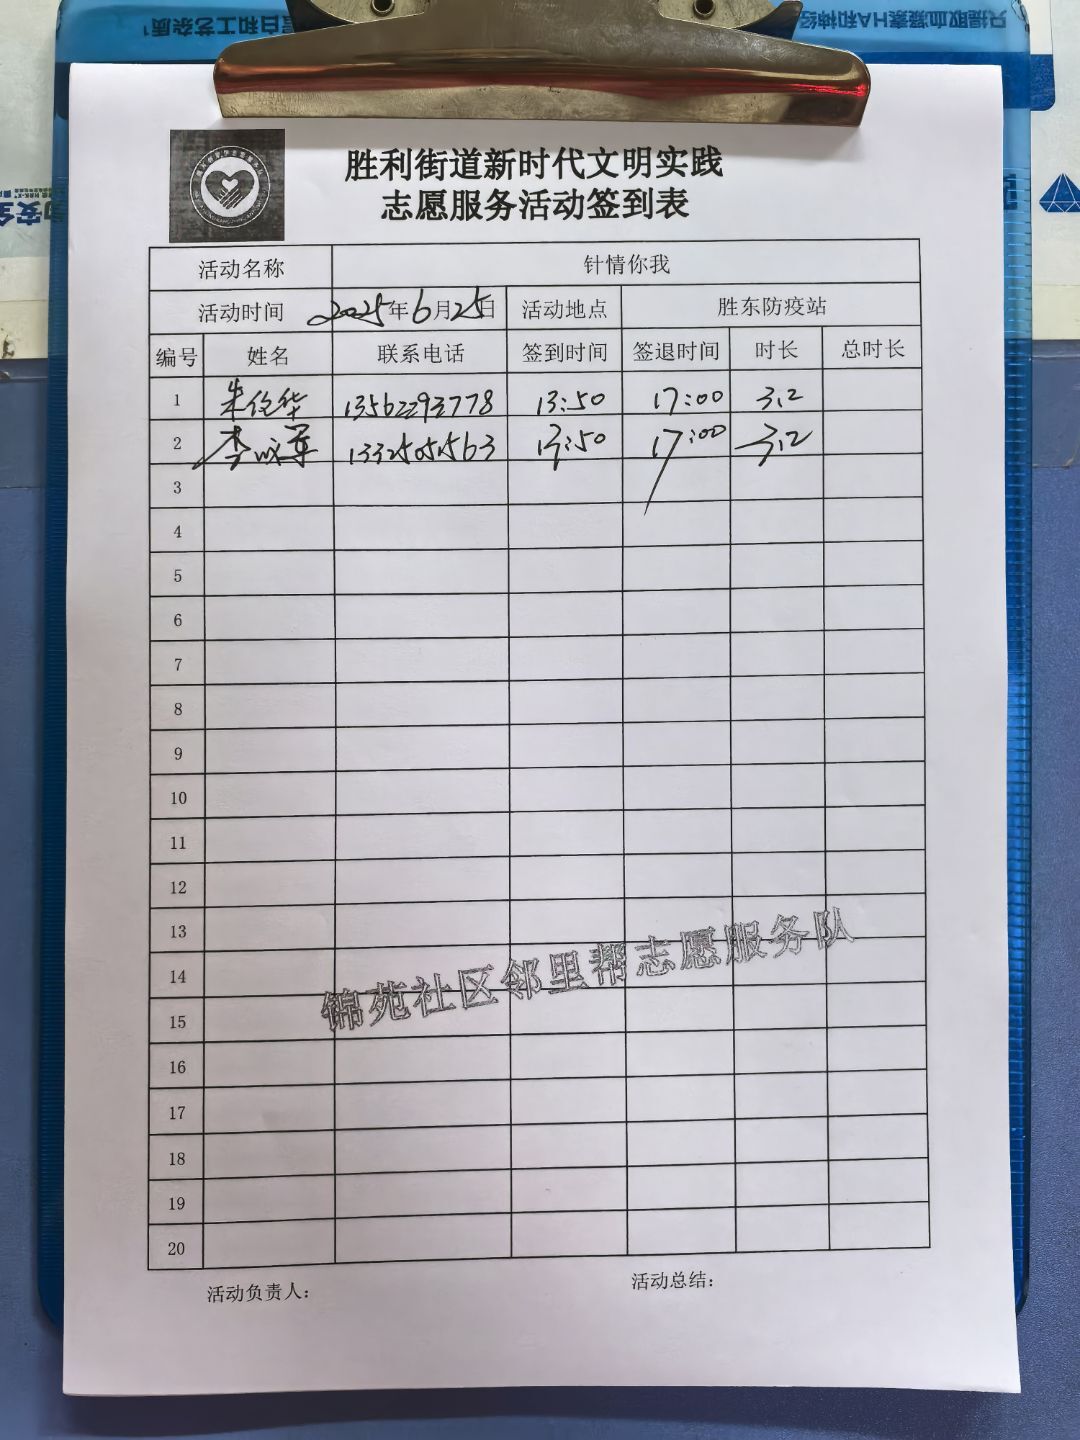 胜利街道新时代文明实践
志愿服务活动签到表
活动名称 针情你我
活动时间 2025年6月25日 活动地点 胜东防疫站
编号 姓名 联系电话 签到时间 签退时间 时长 总时长
1 朱伦华 13562293778 13:50 17:00 3.2
2 李 军 13325051563 13:50 17:00 3.2
3
4
5
6
7
8
9
10
11
12
13
14
15
16
17
18
19
20
锦苑社区邻里帮志愿服务队
活动负责人： 活动总结：